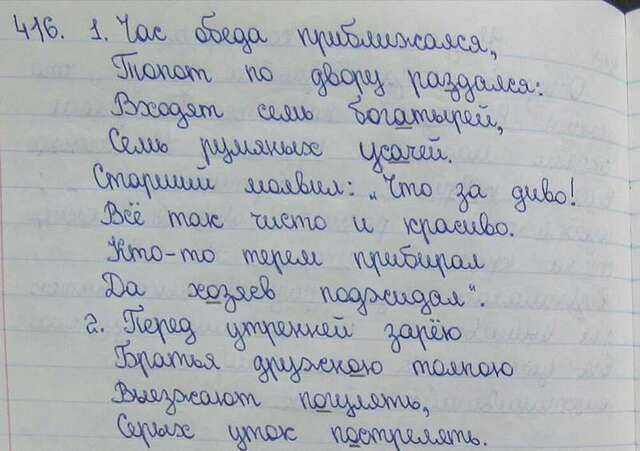 416. 1. Час обеда приближался,
Топот по двору раздался:
Входят семь богатырей,
Семь румяных усачей.
Старший молвил: „Что за диво!
Всё так чисто и красиво.
Кто-то терем прибирал
Да хозяев поджидал".
2. Перед утренней зарёю
Братья дружною толпою
Выезжают погулять,
Серых уток пострелять.